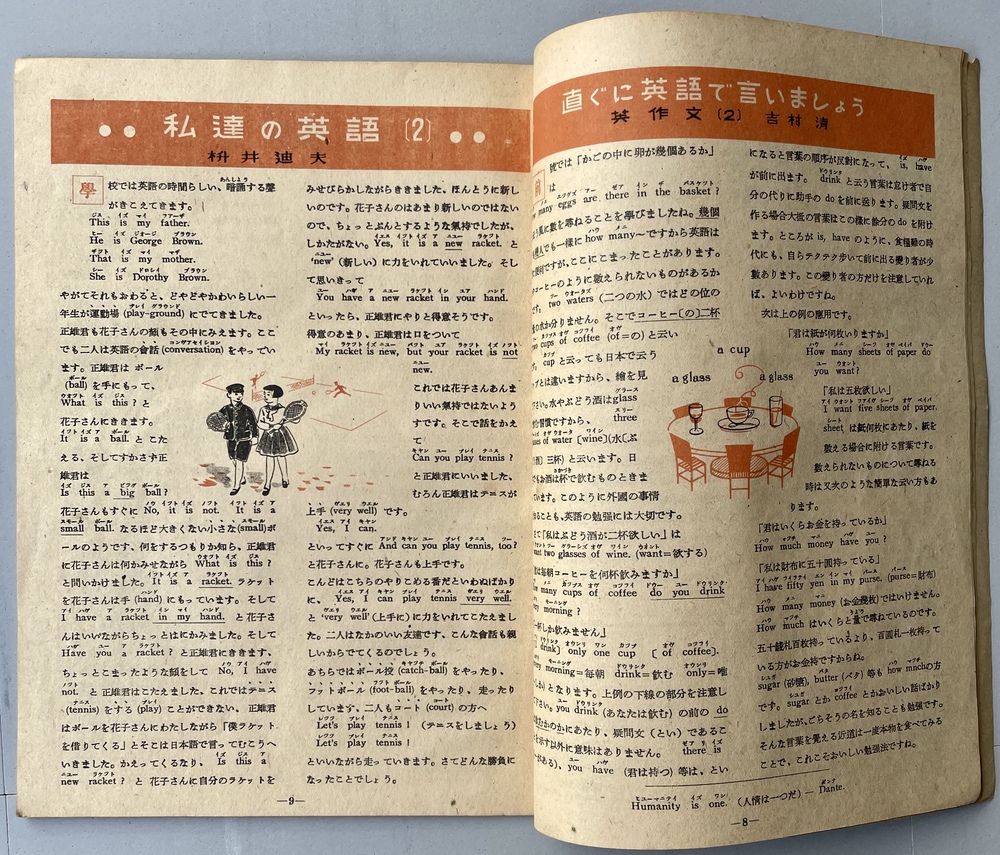 私達の英語〔2〕
枡井迪夫
學校では英語の時間らしい、暗誦する聲
がきこえてきます。
ジス イズ マイ ファーザ
This is my father.
ヒー イズ ジオージ ブラウン
He is George Brown.
ザット イズ マイ マザー
That is my mother.
シー イズ ドロシイ ブラウン
She is Dorothy Brown.
やがてそれもおわると、どやどやかわいらしい一
プレイ グラウンド
年生が運動場 (play-ground) にでてきました。
正雄君も花子さんの顔もその中にみえます。ここ
コンヴァセイション
でも二人は英語の會話 (conversation) をやってい
ます。正雄君は ボール
(ball) を手にもって、
What is this? と
花子さんにききます。
It is a ball. とこた
える、そしてすかさず正
雄君は
Is this a big ball?
花子さんもすぐに No, it is not. It is a
small ball. なるほど大きくない小さな(small)ボ
ールのようです、何をするつもりか知ら、正雄君
に花子さんは何かみせながら What is this?
と問いかけました。It is a racket. ラケット
を花子さんは手 (hand) にもっています。そして
I have a racket in my hand. と花子さ
んはいいながらちょっとはにかみました。そして
Have you a racket? と正雄君にききます、
ちょっとこまったような顔をして No, I have
not. と正雄君はこたえました、これではテニス
(tennis) をする (play) ことができない、正雄君
はボールを花子さんにわたしながら「僕ラケット
を借りてくる」とそこは日本語で言ってむこうへ
いきました。かえってくるなり、Is this a
new racket? と花子さんに自分のラケットを
みせびらかしながらききました、ほんとうに新し
いのです。花子さんのはあまり新しいのではない
ので、ちょっとぷんとするような氣持でしたが、
しかたがない。Yes, it is a new racket. と
'new' (新しい) に力をいれていいました。そし
て思いきって
You have a new racket in your hand.
といったら、正雄君にやりと得意そうです。
得意のあまり、正雄君は口をついて
My racket is new, but your racket is not
new.
これでは花子さんあんま
りいい氣持ではないよう
すです。そこで話をかえ
て
Can you play tennis?
と正雄君にいいました、
むろん正雄君はテニスが
上手 (very well) です。
Yes, I can.
といってすぐに And can you play tennis, too?
と花子さんに。花子さんも上手です。
こんどはこちらのやりこめる番だといわぬばかり
に、Yes, I can play tennis very well.
と 'very well' (上手に) に力をいれてこたえまし
た。二人はなかのいい友達です、こんな會話も親
しいからでてくるのでしょう。
あちらではボール投 (catch-ball) をやったり、
フットボール (foot-ball) をやったり、走ったり
しています、二人もコート (court) の方へ
Let's play tennis! (テニスをしましょう)
Let's play tennis!
といいながら走っていきます。さてどんな勝負に
なったことでしょう。
—9—
直ぐに英語で言いましょう
英作文〔2〕 吉村清
號では「かごの中に卵が幾個あるか」
は
many eggs are there in the basket?
風に數を尋ねることを學びましたね。幾個
人でも一様に how many~ですから英語は
便利ですが、ここにこまったことがあります。
コーヒーのように數えられないものがあるか
です。two waters (二つの水) ではどの位の
の水か分りません。そこでコーヒー〔の〕二杯
cups of coffee (of=の) と云い
cup と云っても日本で云う
プとは違いますから、繪を見
さい。水やぶどう酒はglass
習慣ですから、three
glasses of water [wine](水〔ぶ
酒〕三杯) と云います。日
もお酒は杯で飲むものときま
います。このように外國の事情
ることも、英語の勉強には大切です。
て「私はぶどう酒が二杯欲しい」は
want two glasses of wine. (want=欲する)
は毎朝コーヒーを何杯飲みますか」
many cups of coffee do you drink
morning?
杯しか飲みません」
drink] only one cup 〔of coffee〕.
morning=毎朝 drink=飲む only=唯
となります。上例の下線の部分を注意し
you drink (あなたは飲む) の前の do
かのかにあたり、疑問文 (といであるこ
を示す以外に意味はありません。there is
がある)、you have (君は持つ) 等は、とい
になると言葉の順序が反對になって、is, have
が前に出ます。drink と云う言葉は怠け者で自
分の代りに助手の do を前に送ります。疑問文を
作る場合大抵の言葉はこの様に餘分の do を附け
ます。ところが is, have のように、食糧難の時
代にも、自らテクテク歩いて前に出る變り者が少
數あります。この變り者の方だけを注意していれ
ば、よいわけですね。
次は上の例の應用です。
「君は紙が何枚いりますか」
How many sheets of paper do
you want?
「私は五枚欲しい」
I want five sheets of paper.
sheet は紙何枚にあたり、紙を
數える場合に附ける言葉です。
數えられないものについて尋ねる
時は又次のような簡單な云い方もあ
ります。
「君はいくらお金を持っているか」
How much money have you?
「私は財布に五十圓持っている」
I have fifty yen in my purse. (purse=財布)
How many money (お金幾枚)ではいけません。
How much はいくらと量で尋ねているのです。
五十錢札百枚持っているより、百圓札一枚持って
いる方がお金持ですからね。
sugar (砂糖), butter (バタ) 等も how muchの方
です。sugar とか coffee とかおいしい話ばかり
しましたが、どちらその名を知ることも勉強です。
そんな言葉を覺える近道は一度本物を食べてみる
ことで、これこそおいしい勉強法ですね。
a cup
a glass
a glass
ヒューマニティ イズ ワン ダンテ
Humanity is one. (人情は一つだ) — Dante.
—8—